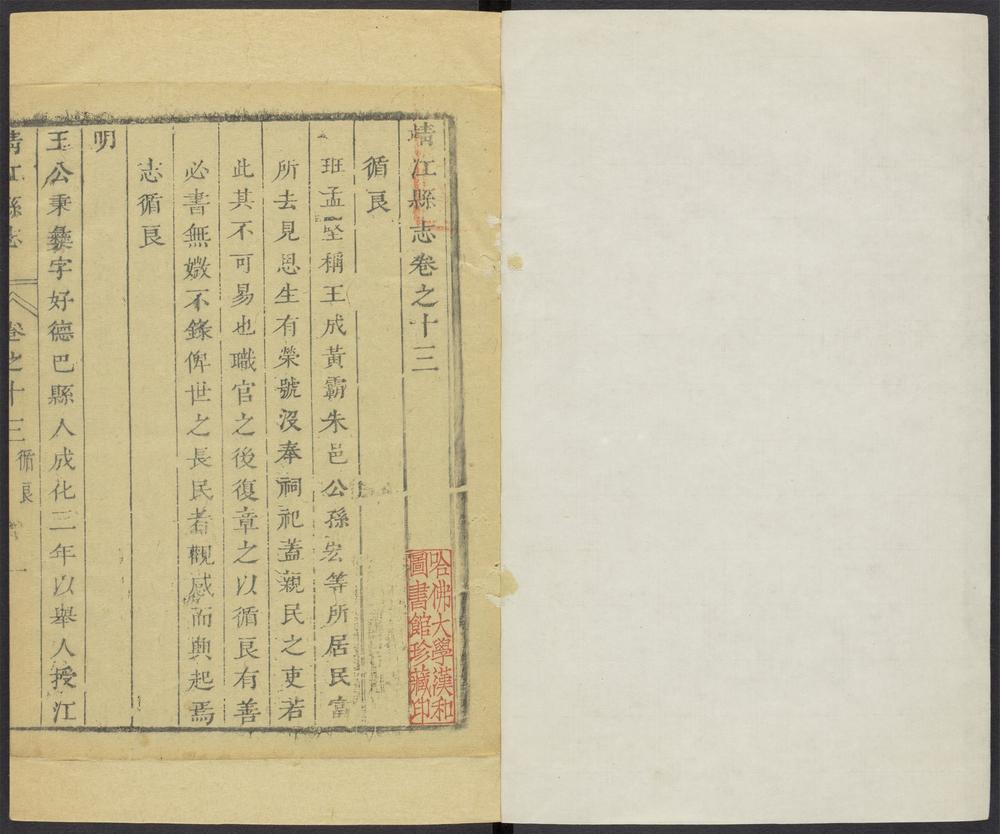 靖江縣志卷之十三
循良
班孟堅稱王成黃霸朱邑公孫宏等所居民富
所去見思生有榮號沒奉祠祀蓋親民之吏若
此其不可易也職官之後復章之以循良有善
必書無媺不錄俾世之長民者觀感而興起焉
志循良
明
王公秉彝字好德巴縣人成化三年以舉人授江
靖江縣志
卷之十三
循良
一
哈佛大學漢和
圖書館珍藏印